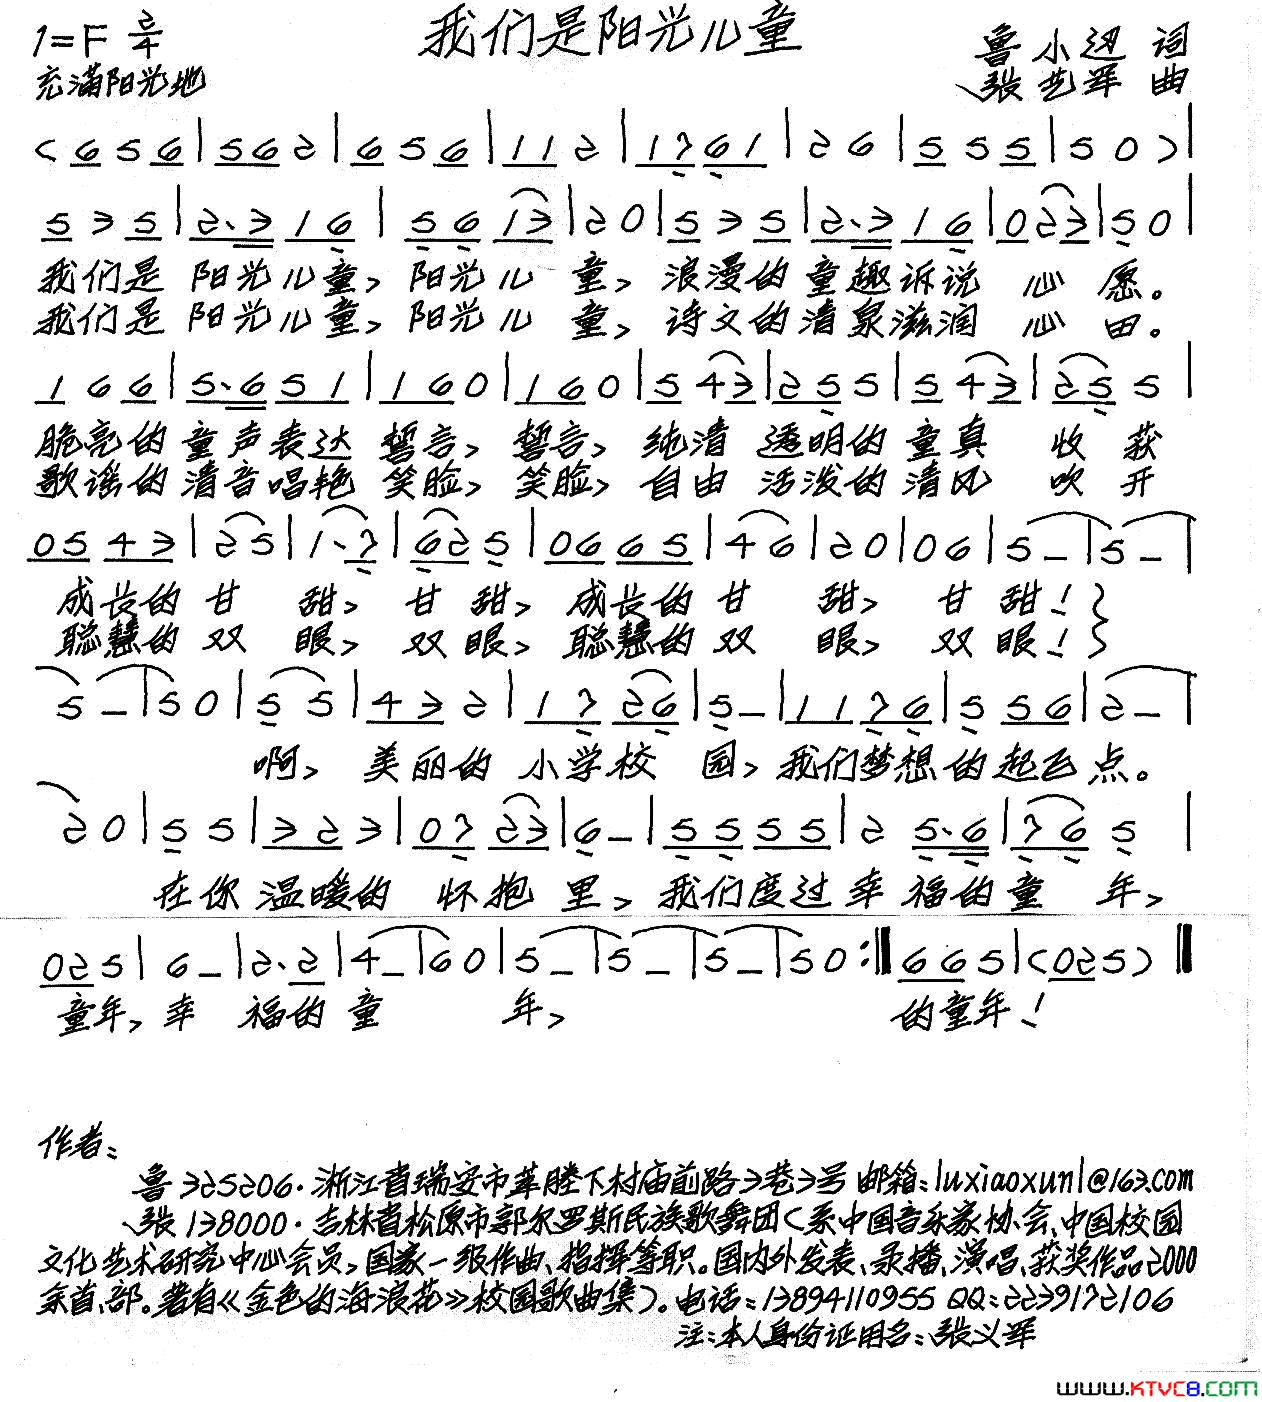 我们是阳光儿童
1=F 2/4
鲁小迅 词
充满阳光地
张艺军 曲
(6 5 6|5 6 2|6 5 6|1 1 2|1 7 6 1|2 6|5 5 5|5 0)|
5 3 5|2·3 1 6|5 6 1 3|2 0|5 3 5|2·3 1 6|0 2 3|5 0|
我们是 阳光儿童, 阳光儿 童, 浪漫的 童趣诉说 心 愿。
我们是 阳光儿童, 阳光儿 童, 诗文的 清泉滋润 心 田。
1 6 6|5·6 5 1|1 6 0|1 6 0|5 4 3|2 5 5|5 4 3|2 5 5|
脆亮的 童声表达 誓言, 誓言, 纯清 透明的 童真 收 获
歌谣的 清音唱艳 笑脸, 笑脸, 自由 活泼的 清风 吹 开
0 5 4 3|2 5|1·7|6 2 5|0 6 6 5|4 6|2 0|0 6|5 –|5 –|
成长的 甘 甜, 甘 甜, 成长的 甘 甜, 甘 甜!}
聪慧的 双 眼, 双 眼, 聪慧的 双 眼, 双 眼!}
5 –|5 0|5 5|4 3 2|1 7 2 6|5 –|1 1 7 6|5 5 6|2 –|
啊, 美丽的 小学校 园, 我们梦想 的 起飞点。
2 0|5 5|3 2 3|0 7 2 3|6 –|5 5 5 5|2 5·6|7 6 5|
在你 温暖的 怀抱 里, 我们度过 幸 福的 童 年,
0 2 5|6 –|2·2|4 –|6 0|5 –|5 –|5 –|5 0:‖6 6 5|(0 2 5)‖
童年, 幸 福的 童 年, 的童年!
作者:
鲁 325206·浙江省瑞安市莘塍下村庙前路3巷3号 邮箱:luxiaoxun1@163.com
张 138000·吉林省松原市郭尔罗斯民族歌舞团(系中国音乐家协会、中国校园
文化艺术研究中心会员,国家一级作曲、指挥等职。国内外发表、录播、演唱、获奖作品2000
余首、部。著有《金色的海浪花》校园歌曲集)。电话:13894110955 QQ:2239172106
注:本人身份证用名:张义军
www.KTVC8.COM